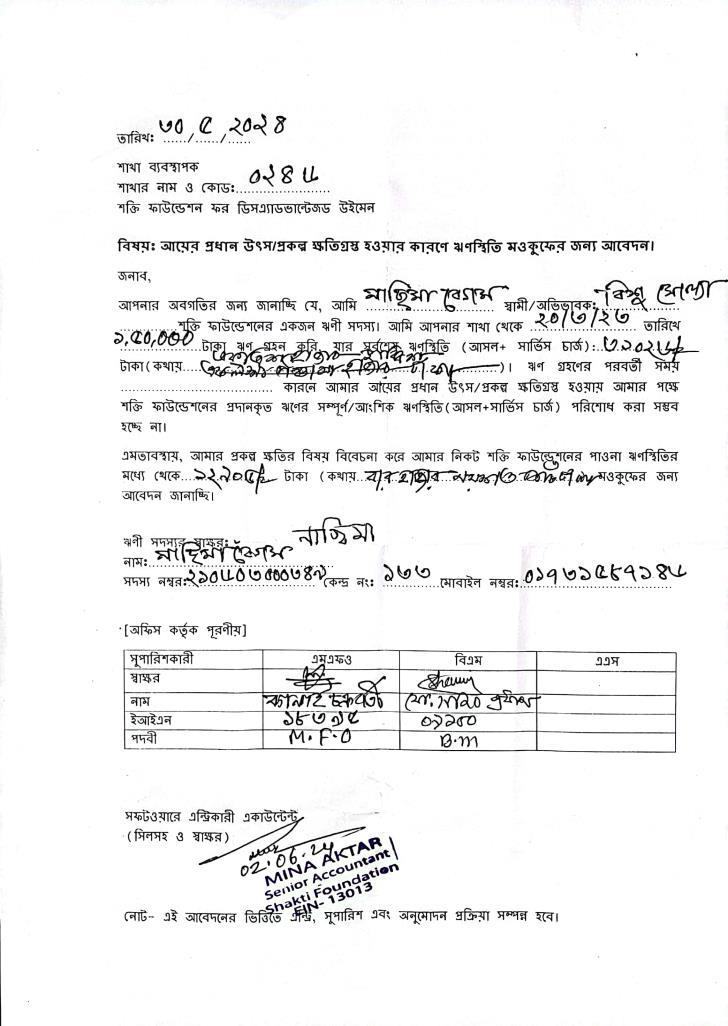 তারিখ: ৩০, ৫, ২০২৪
শাখা ব্যবস্থাপক
শাখার নাম ও কোড: ০২৪৬
শক্তি ফাউন্ডেশন ফর ডিসএ্যাডভান্টেজড উইমেন
বিষয়: আয়ের প্রধান উৎস/প্রকল্প ক্ষতিগ্রস্ত হওয়ার কারণে ঋণস্থিতি মওকুফের জন্য আবেদন।
জনাব,
আপনার অবগতির জন্য জানাচ্ছি যে, আমি নাছিমা বেগম স্বামী/অভিভাবক:
শক্তি ফাউন্ডেশনের একজন ঋণী সদস্য। আমি আপনার শাখা থেকে ২০/৩/২৩ তারিখে
১,৫০,০০০ টাকা ঋণ গ্রহন করি, যার সর্বশেষ ঋণস্থিতি (আসল+ সার্ভিস চার্জ):
টাকা(কথায় )। ঋণ গ্রহণের পরবর্তী সময়
কারনে আমার আয়ের প্রধান উৎস/প্রকল্প ক্ষতিগ্রস্ত হওয়ায় আমার পক্ষে
শক্তি ফাউন্ডেশনের প্রদানকৃত ঋণের সম্পূর্ণ/আংশিক ঋণস্থিতি(আসল+সার্ভিস চার্জ) পরিশোধ করা সম্ভব
হচ্ছে না।
এমতাবস্থায়, আমার প্রকল্প ক্ষতির বিষয় বিবেচনা করে আমার নিকট শক্তি ফাউন্ডেশনের পাওনা ঋণস্থিতির
মধ্যে থেকে টাকা (কথায় বার হাজার নয়শত মওকুফের জন্য
আবেদন জানাচ্ছি।
ঋণী সদস্যর স্বাক্ষর: নাছিমা
নাম: নাছিমা বেগম
সদস্য নম্বর: কেন্দ্র নং: ১৩৩ মোবাইল নম্বর:
[অফিস কর্তৃক পূরণীয়]
সুপারিশকারী এমএফও বিএম এএস
স্বাক্ষর
নাম
ইআইএন ০১২০০
পদবী M.F.O B.m
সফটওয়ারে এন্ট্রিকারী একাউন্টেন্ট
(সিলসহ ও স্বাক্ষর)
02.06.24
MINA AKTAR
Senior Accountant
Shakti Foundation
EIN-13013
নোট- এই আবেদনের ভিত্তিতে এন্ট্রি, সুপারিশ এবং অনুমোদন প্রক্রিয়া সম্পন্ন হবে।